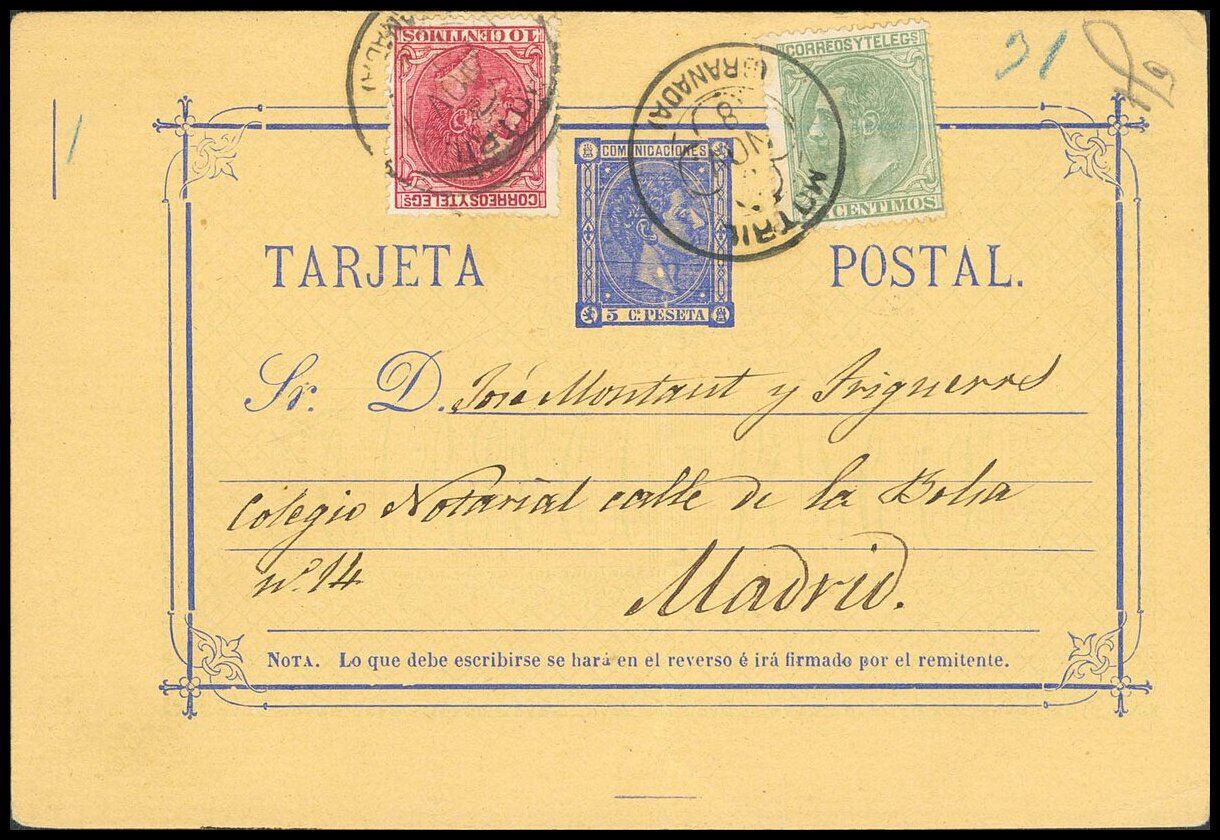 10 CENTIMOS
CORREOS Y TELEGS
CORREOS Y TELEGS
CENTIMOS
MOTRIL
(GRANADA)
8 NOV
31
1
COMUNICACIONES
5 C. PESETA
TARJETA POSTAL.
Sr. D. José Montaut y Trigueros
Colegio Notarial calle de la Bolsa
nº 14 Madrid.
NOTA. Lo que debe escribirse se hará en el reverso é irá firmado por el remitente.